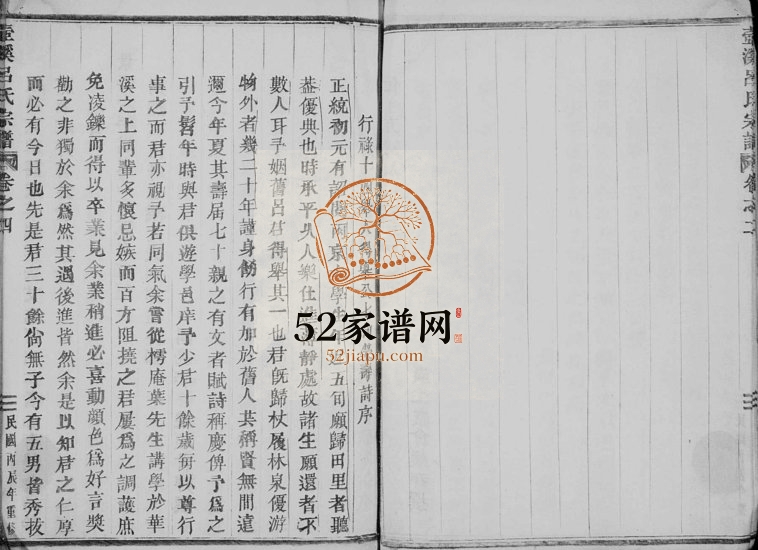 壼溪呂氏宗譜
卷之四
行祿十
壽詩序
正統初元有詔
學
五旬願歸田里者聽
葢優典也時承平
人樂仕進
靜處故諸生願還者不
數人耳予姻舊呂君得舉其一也君旣歸杖履林泉優游
物外者幾二十年謹身飭行有加於舊人其稱賢無間遠
邇今年夏其壽届七十親之有文者賦詩稱慶俾予爲之
引予髫年時與君俱遊學邑庠予少君十餘歲每以尊行
事之而君亦視予若同氣余嘗從樗庵葉先生講學於華
溪之上同輩多懷忌嫉而百方阻撓之君屢爲之調護庶
免凌鑠而得以卒業見余業稍進必喜動顔色爲好言獎
勸之非獨於余爲然其遇後進皆然余是以知君之仁厚
而必有今日也先是君三十餘尙無子今有五男皆秀拔
民國丙辰年重修
52家谱网
52jiapu.com